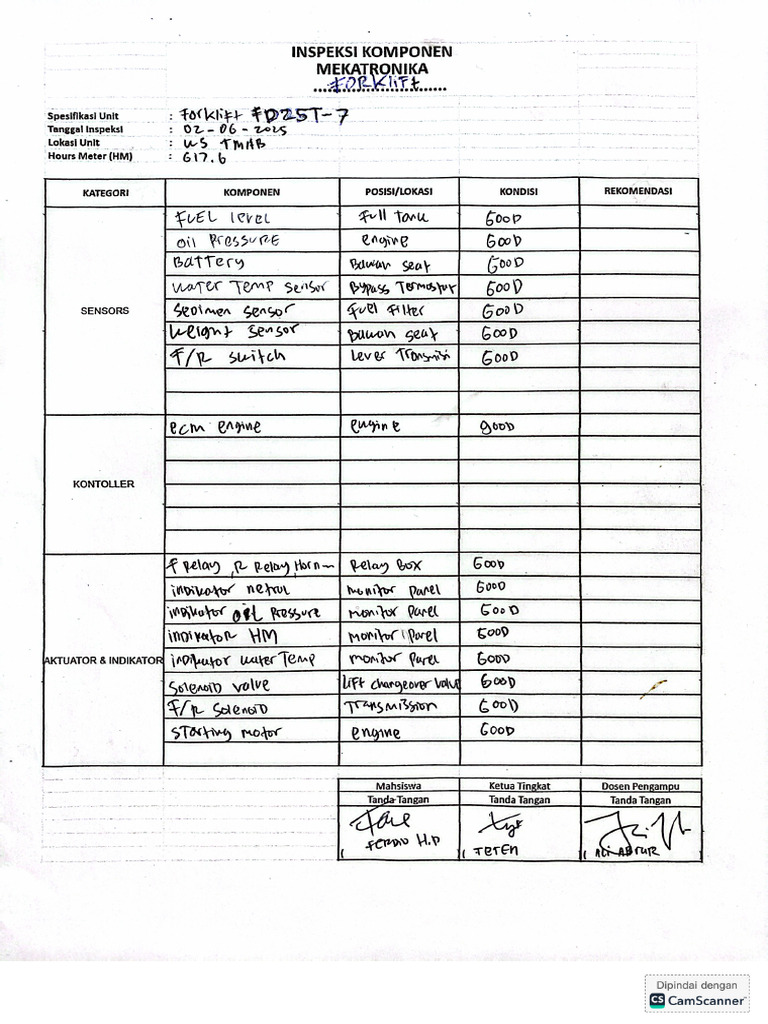 INSPEKSI KOMPONEN
MEKATRONIKA
FORKLIFT
Spesifikasi Unit : Forklift FD25T-7
Tanggal Inspeksi : 02-06-2025
Lokasi Unit : WS TMAB
Hours Meter (HM) : 617.6
KATEGORI KOMPONEN POSISI/LOKASI KONDISI REKOMENDASI
FUEL level Full tank GOOD
oil PRESSURE engine GOOD
Battery Bawah seat GOOD
water Temp sensor Bypass Termostat GOOD
SENSORS
sedimen sensor Fuel Filter GOOD
weight sensor Bawah seat GOOD
F/R switch Lever Transmisi GOOD
ecm engine engine gOOD
KONTOLLER
F Relay, R Relay, Horn Relay Box GOOD
indikator netral monitor panel GOOD
indikator oil Pressure monitor panel GOOD
indikator HM monitor panel GOOD
AKTUATOR & INDIKATOR indikator water Temp monitor panel GOOD
solenoid valve Lift changeover valve GOOD
F/R solenoid Transmission GOOD
starting motor engine GOOD
Mahsiswa Ketua Tingkat Dosen Pengampu
Tanda Tangan Tanda Tangan Tanda Tangan
( FERDIO H.P ( TETEN ( ALI
Dipindai dengan
CS CamScanner